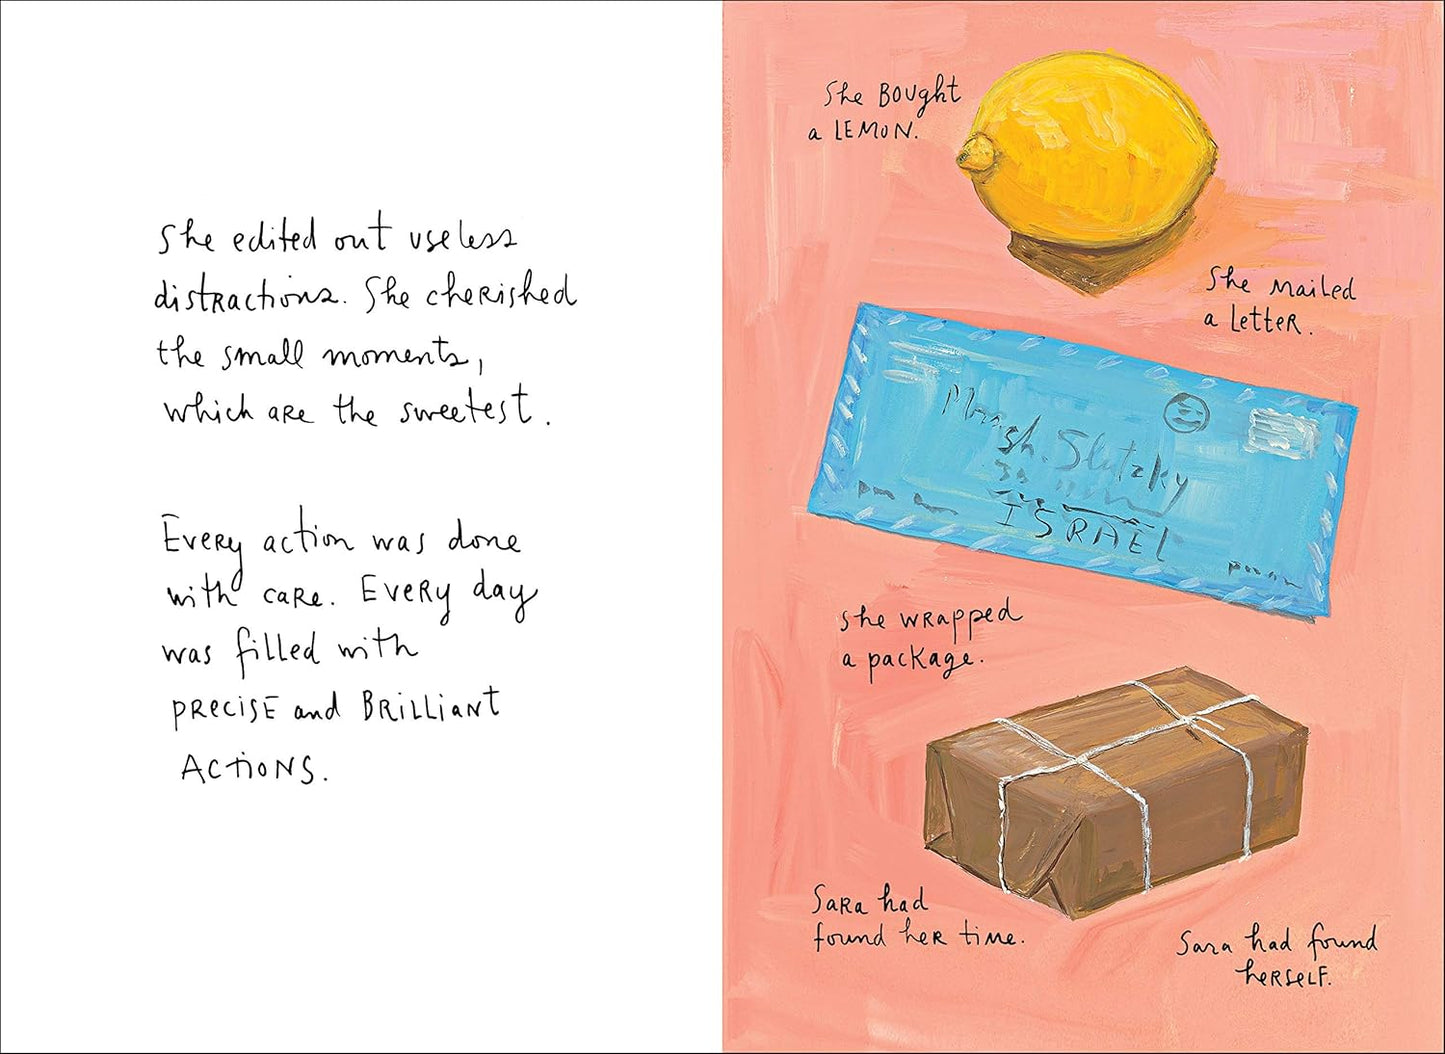 She edited out useless
distractions. She cherished
the small moments,
which are the sweetest.
Every action was done
with care. Every day
was filled with
PRECISE and BRiLLiant
ACtiONS.
She BOUGht
a LEMON.
She mailed
a letter.
Sh. Slutzky
ISRAEL
She wrapped
a package.
Sara had
found her time.
Sara had found
herself.